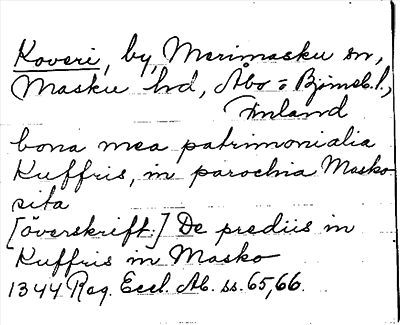 Koveri, by, Merimasku sn,
Masku hd, Åbo = Björneb. l.,
Finland
bona mea patrimonialia
Kuffris, in parochia Masko
sita
[överskrift:] De prediis in
Kuffris in Masko
1344 Reg. Eccl. Ab. ss. 65, 66.